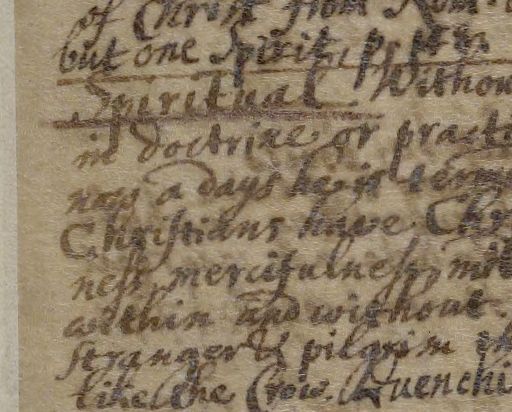 of Christ from Rom.
but one Spirit, p
Spiritual. Withou
in doctrine or practi
now a days he is term
Christians have Chr
ness, mercifulness, m
within and without.
strangers pilgrim
like the Crow. Quenchi